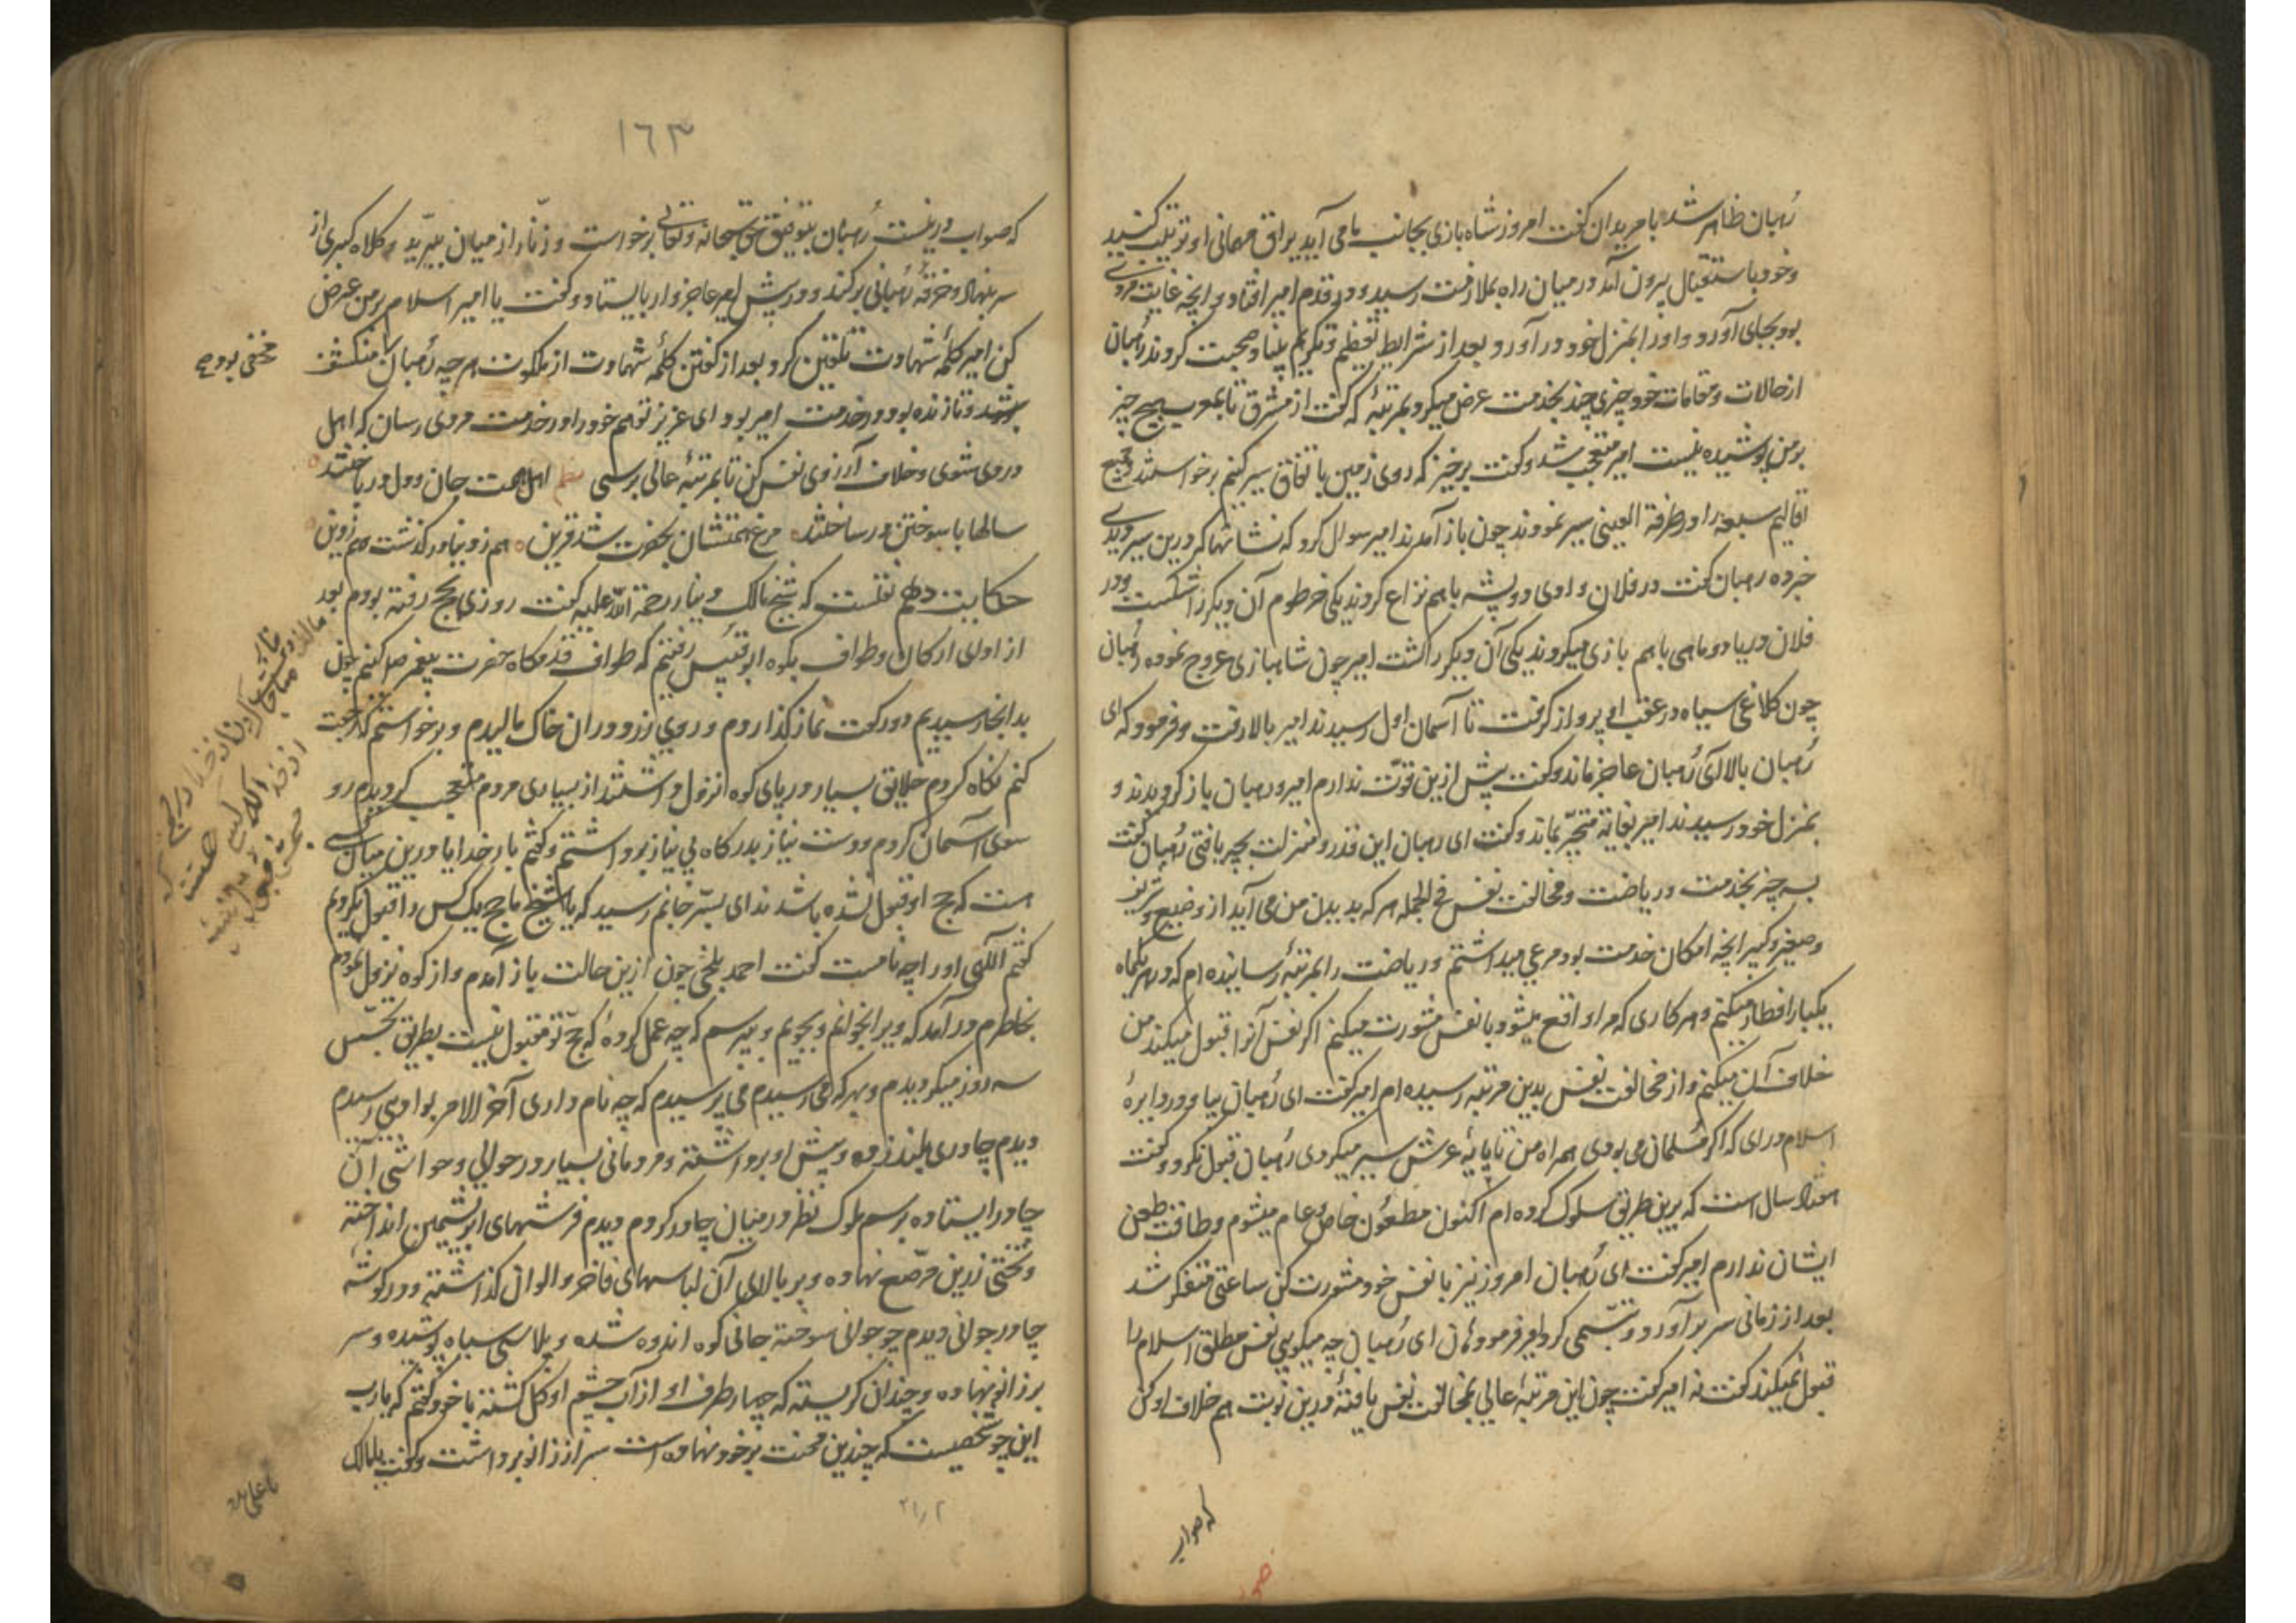 رُهبان ظاهر شد با مریدان کفت امروز شاه بازی بجانب ما می آید یراق مهمانی او ترتیب کنید
و خود باستقبال بیرون آمد در میان راه بملازمت رسید و در قدم امیر افتاد و انچه غایت مروت
بود بجای آورد و اورا بمنزل خود در آورد و بعد از شرایط تعظیم و تکریم بنیاد صحبت کردند رُهبان
از حالات و مقامات خود چیزی چند بخدمت عرض میکرد بمرتبهٔ که کفت از مشرق تا بمغرب هیچ چیز
بر من پوشیده نیست امیر متعجب شد و کفت برخیز که روی زمین باتفاق سیر کنیم برخواستند و جمیع
اقالیم سبعه را در طرفة العینی سیر نمودند چون باز آمدند امیر سوال کرد که نشانها که درین سیر دیدی
خبر ده رهبان کفت در فلان وادی دو پشه باهم نزاع کردند یکی خرطوم آن دیکر را شکست و در
فلان دریا دو ماهی باهم بازی میکردند یکی آن دیکر را کشت امیر چون شاهبازی عروج نموده رُهبان
چون کلاغی سیاه در عقب او پرواز کرفت تا آسمان اول رسیدند امیر بالا رفت و فرمود که ای
رُهبان بالا آی رُهبان عاجز ماند و کفت بیش ازین قوّت ندارم امیر و رهبان باز کردیدند و
بمنزل خود رسیدند امیر بغایة متحیّر بماند و کفت ای رهبان این قدر و منزلت بچه یافتی رُهبان کفت
بسه چیز بخدمت و ریاضت و مخالفت نفس فی الجمله هر که بدیدن من می آید از وضیع و شریف
و صغیر و کبیر انچه امکان خدمت بود مرعی میداشتم و ریاضت را بمرتبهٔ رسانیده ام که در هر یکماه
یکبار افطار میکنم و هر کاری که مرا واقع میشود با نفس مشورت میکنم اکر نفس آنرا قبول میکند من
خلاف آن میکنم و از مخالفت نفس بدین مرتبه رسیده ام امیر کفت ای رُهبان بیا و در دایرهٔ
اسلام در آی که اکر مُسلمان می بودی همراه من تا پایهٔ عرش سیر میکردی رُهبان قبول نکرد و کفت
هفتاد سال است که برین طریق سلوک کرده ام اکنون مطعُون خاص و عام میشوم و طاقت طعن
ایشان ندارم امیر کفت ای رُهبان امروز نیز با نفس خود مشورت کن ساعتی متفکر شد
بعد از زمانی سر بر آورد و تبسّمی کرد امیر فرمود هان ای رُهبان چه میکویی نفس مطلق اسلام را
قبول نمیکند کفت نه امیر کفت چون این مرتبهٔ عالی بمخالفت نفس یافتهٔ درین نوبت هم خلاف او کن
که صواب
۱٦۳
که صواب درینست رُهبان بتوفیق حق سبحانه و تعالی برخواست و زنّار از میان ببرّید و کلاه کبری از
سر بنهاد و خرقهٔ رُهبانی برکند و در پیش امیر عاجزوار بایستاد و کفت یا امیر اسلام بر من عرض
کن امیر کلمهٔ شهادت تلقین کرد بعد از کفتن کلمهٔ شهادت از ملکوت هر چه رُهبان را منکشف
مخفی بود
میشد و تا زنده بود در خدمت امیر بود ای عزیز تو هم خود را در خدمت مردی رسان که اهل
دردی شوی و خلاف آرزوی نفس کن تا بمرتبهٔ عالی برسی نظم اهل همت جان و دل در باختند
سالها با سوختن در ساختند مرغ همتشان بحضرت شد قرین هم ز دنیا در کذشت هم ز دین
حکایت دهم نقلست که شیخ مالک دینار رحمة الله علیه کفت روزی بحج رفته بودم بعد
از ادای ارکان و طواف بکوه ابوقبیس رفتیم که طواف قدمکاه حضرت پیغمبر صلم کنم چون
بدانجا رسیدیم دو رکعت نماز کذاردم و روی زرد در ان خاک مالیدم و برخواستم که رجعت
کنم نکاه کردم خلایق بسیار در پای کوه نزول داشتند از بسیاری مردم متعجب کردیدم رو
سوی آسمان کردم و دست نیاز بدرکاه بی نیاز برداشتم و کفتم بار خدایا درین میان کسی
هست که حج او قبول نشده باشد ندای بسرّ جانم رسید که یا شیخ ما حج یک کس را قبول نکردیم
کفتم الٓهی او را چه نامست کفت احمد بلخی چون ازین حالت باز آمدم و از کوه نزول نمودم
بخاطرم در آمد که ویرا بخوانم و بجویم و بپرسم که چه عمل کردهٔ که حجّ تو مقبول نیست بطریق تجسّس
سه روز میکردیدم و بهر که می رسیدم می پرسیدم که چه نام داری آخر الامر بوادیی رسیدم
دیدم چادری بلند زده و پیش او برداشته و مردمانی بسیار در حوالی و حواشی آن
چادر ایستاده برسم ملوک نظر در میان چادر کردم دیدم فرشهای ابریشمین انداخته
و تختی زرین مرصّع نهاده و بر بالای آن لباسهای فاخر و الوان کذاشته و در کوشهٔ
چادر جوانی دیدم چه جوانی سوخته جانی کوه اندوه شده و پلاسی سیاه پوشیده و سر
بر زانو نهاده و چندان کریسته که چهار طرف او از آب چشم او کل کشته با خود کفتم که یارب
این چه شخصیست که چندین محنت بر خود نهاده است سر از زانو برداشت و کفت یا مالک